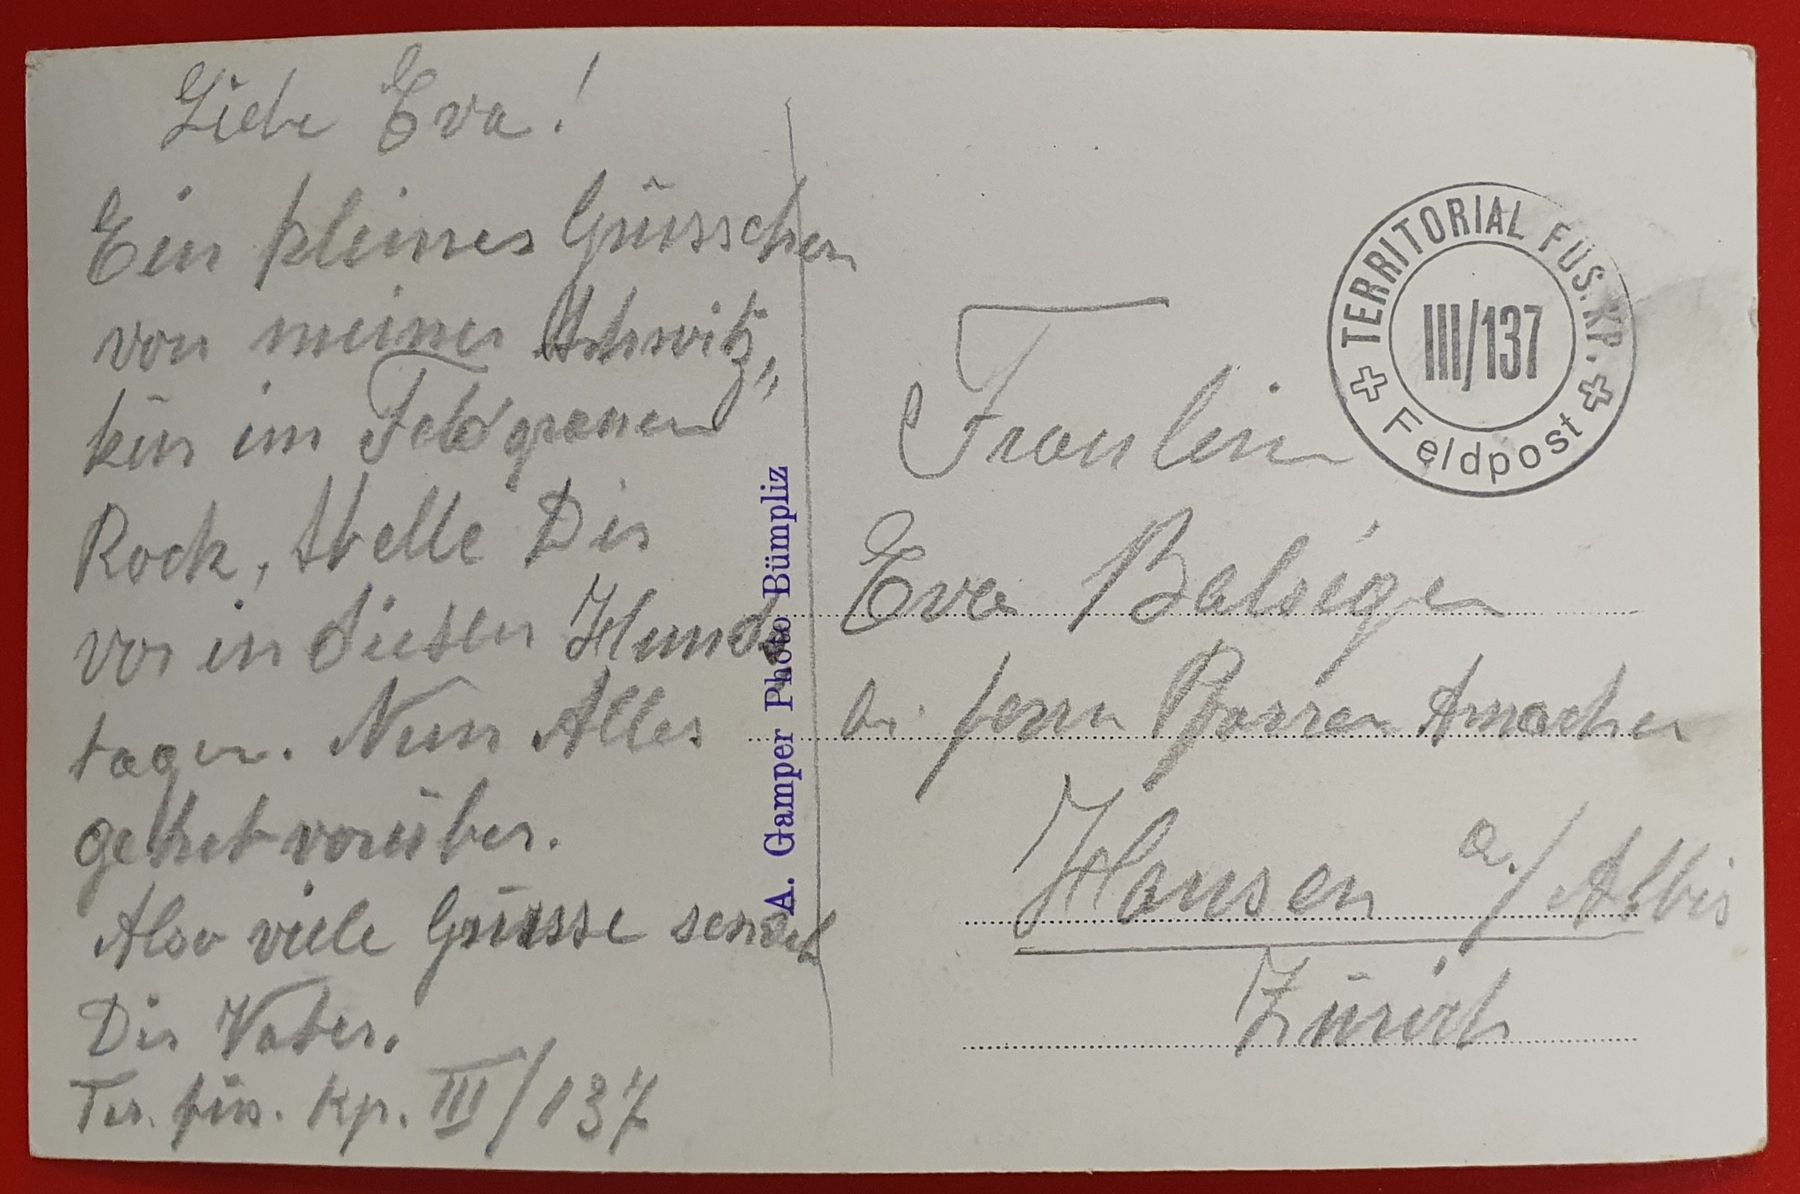 Liebe Eva!
Ein kleines Grüsschen
von meiner Schwitz„
kür im Feldgrauen
Rock, stelle Dir
vor in diesen Hunds
tagen. Nun Alles
gehet vorüber.
Also viele Grüsse sendet
Dir Vater.
Ter. füs. Kp. III/137
A. Gamper Photo Bümpliz
TERRITORIAL FÜS. KP.
III/137
Feldpost
Fraulein
Eva Balsiger
Pfarrer Amacher
Hausen a./Albis
Zürich